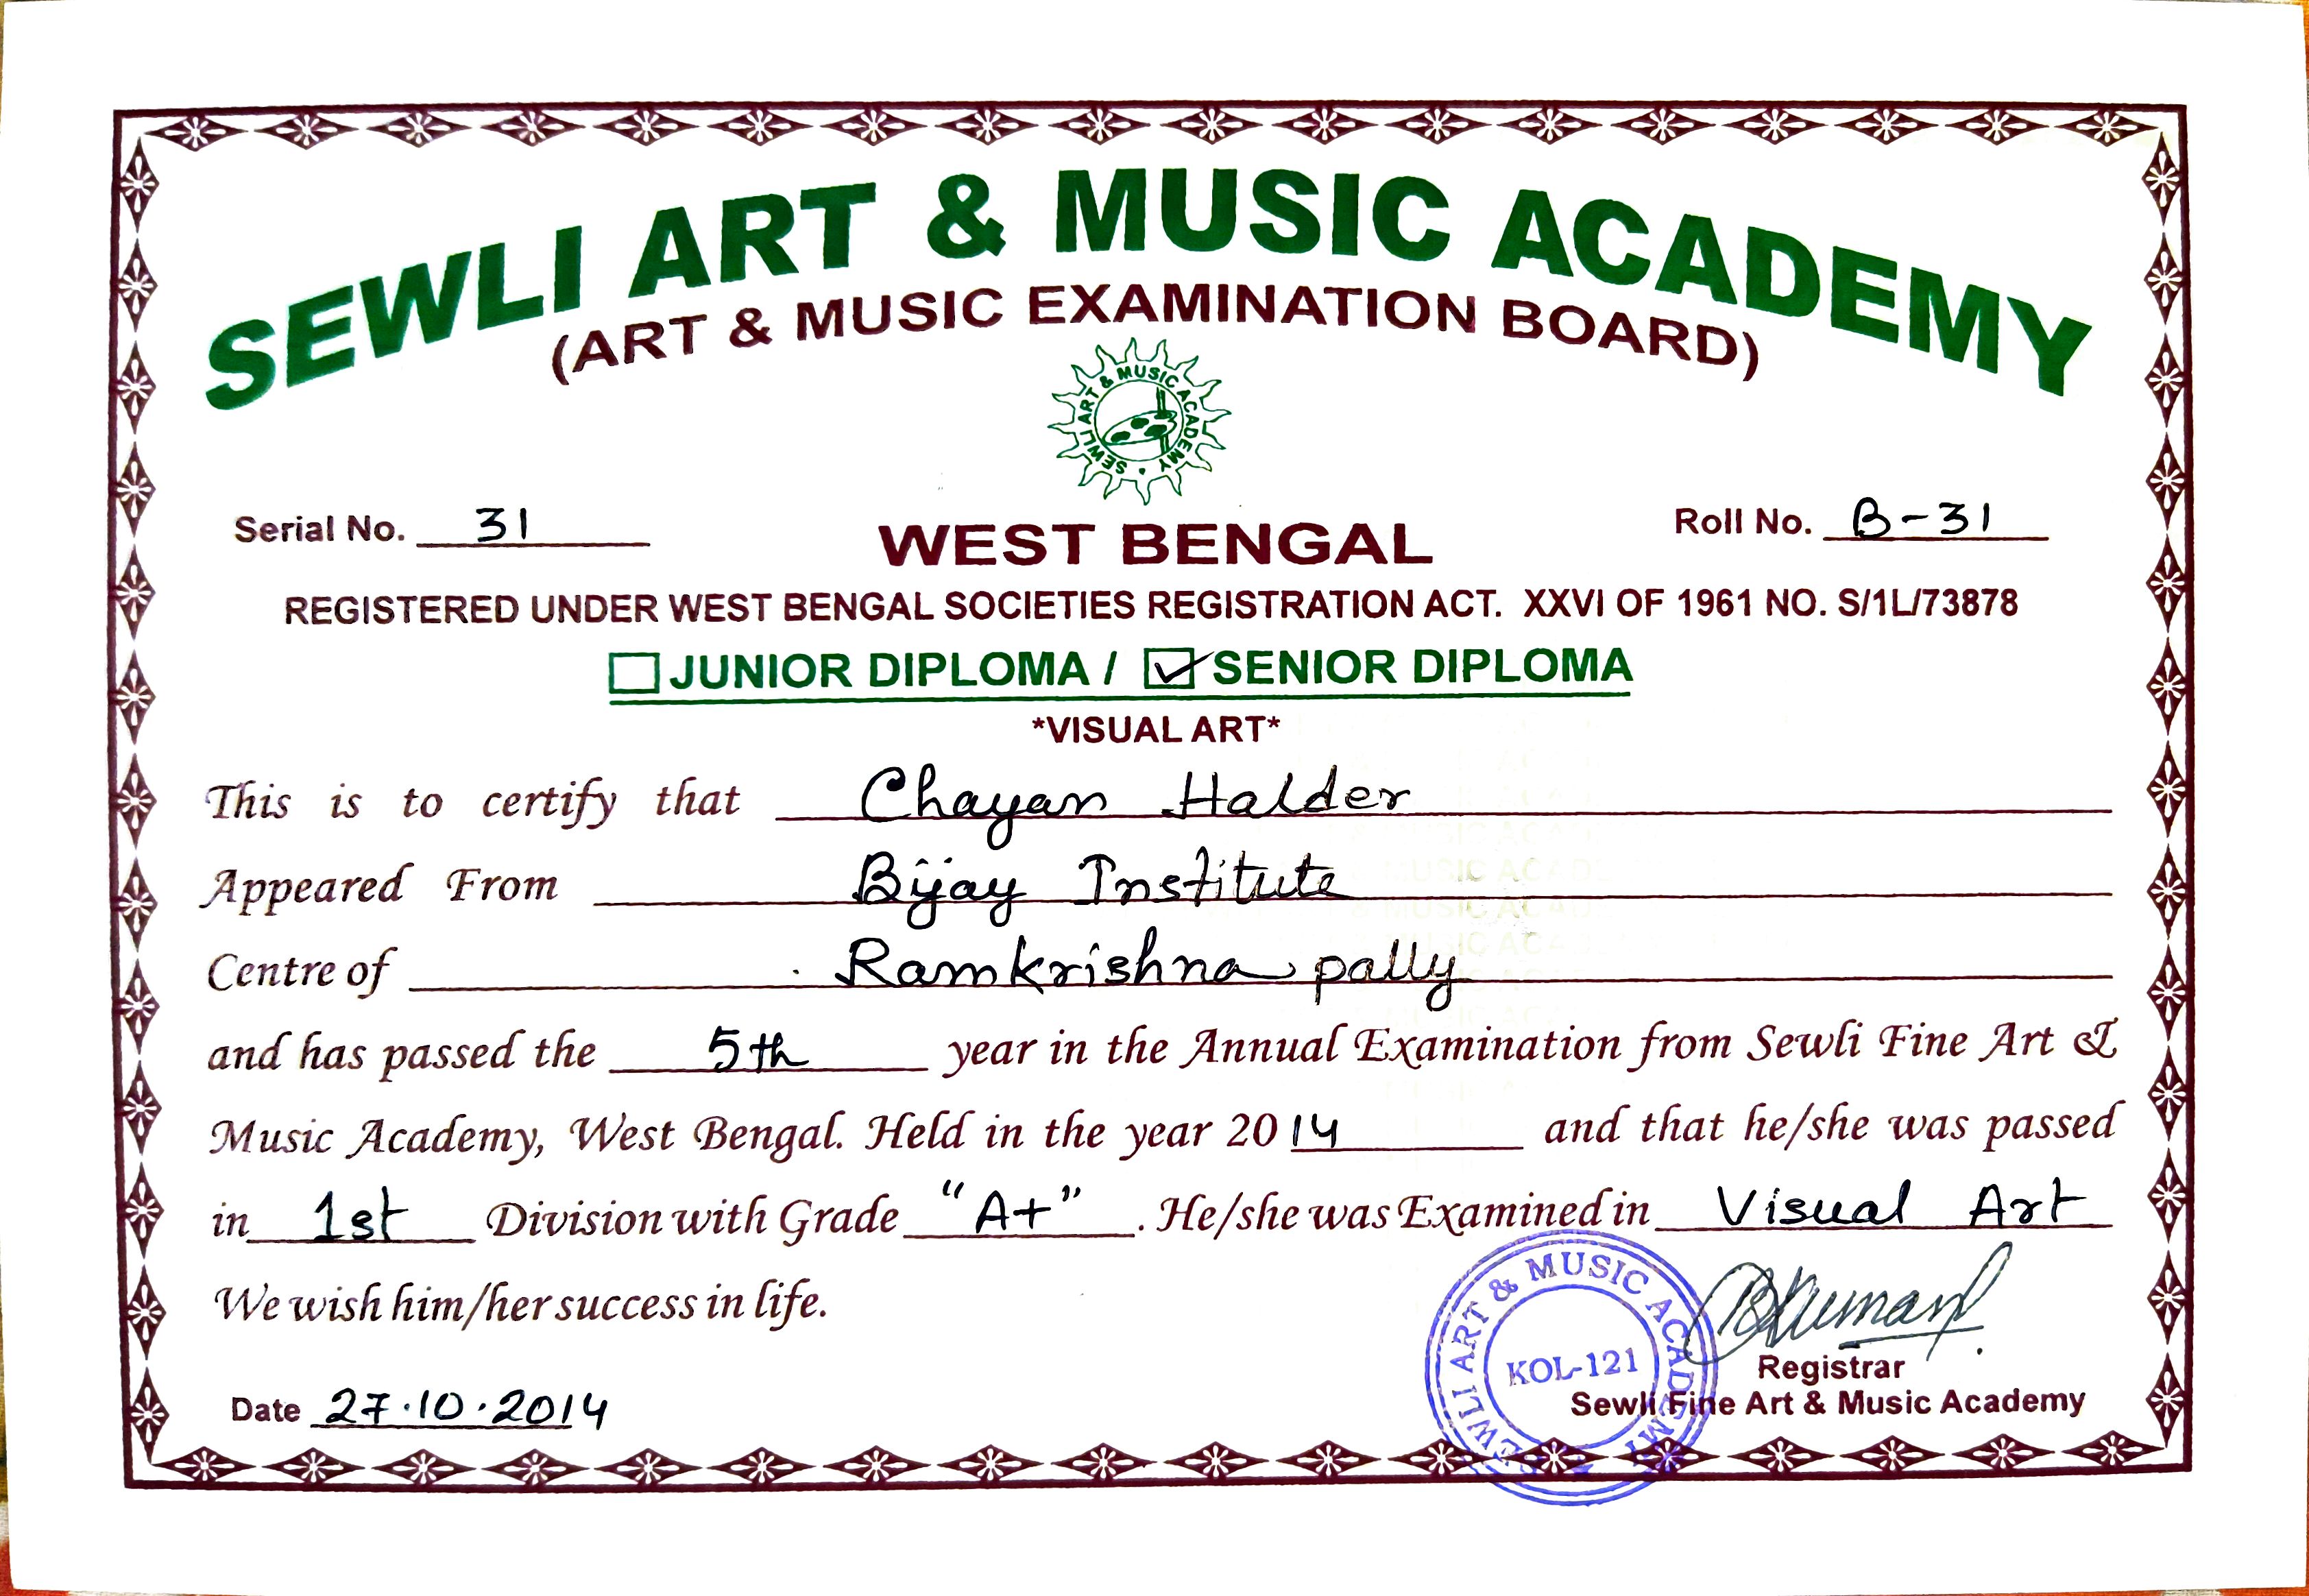 SEWLI ART & MUSIC ACADEMY
(ART & MUSIC EXAMINATION BOARD)
SEWLI ART & MUSIC ACADEMY
Serial No. 31
WEST BENGAL
Roll No. B-31
REGISTERED UNDER WEST BENGAL SOCIETIES REGISTRATION ACT. XXVI OF 1961 NO. S/1L/73878
JUNIOR DIPLOMA / SENIOR DIPLOMA
*VISUAL ART*
This is to certify that Chayan Halder
Appeared From Bijay Institute
Centre of Ramkrishna pally
and has passed the 5th year in the Annual Examination from Sewli Fine Art &
Music Academy, West Bengal. Held in the year 2014 and that he/she was passed
in 1st Division with Grade "A+". He/she was Examined in Visual Art
We wish him/her success in life.
SEWLI ART & MUSIC ACADEMY
KOL-121
Registrar
Sewli Fine Art & Music Academy
Date 27.10.2014